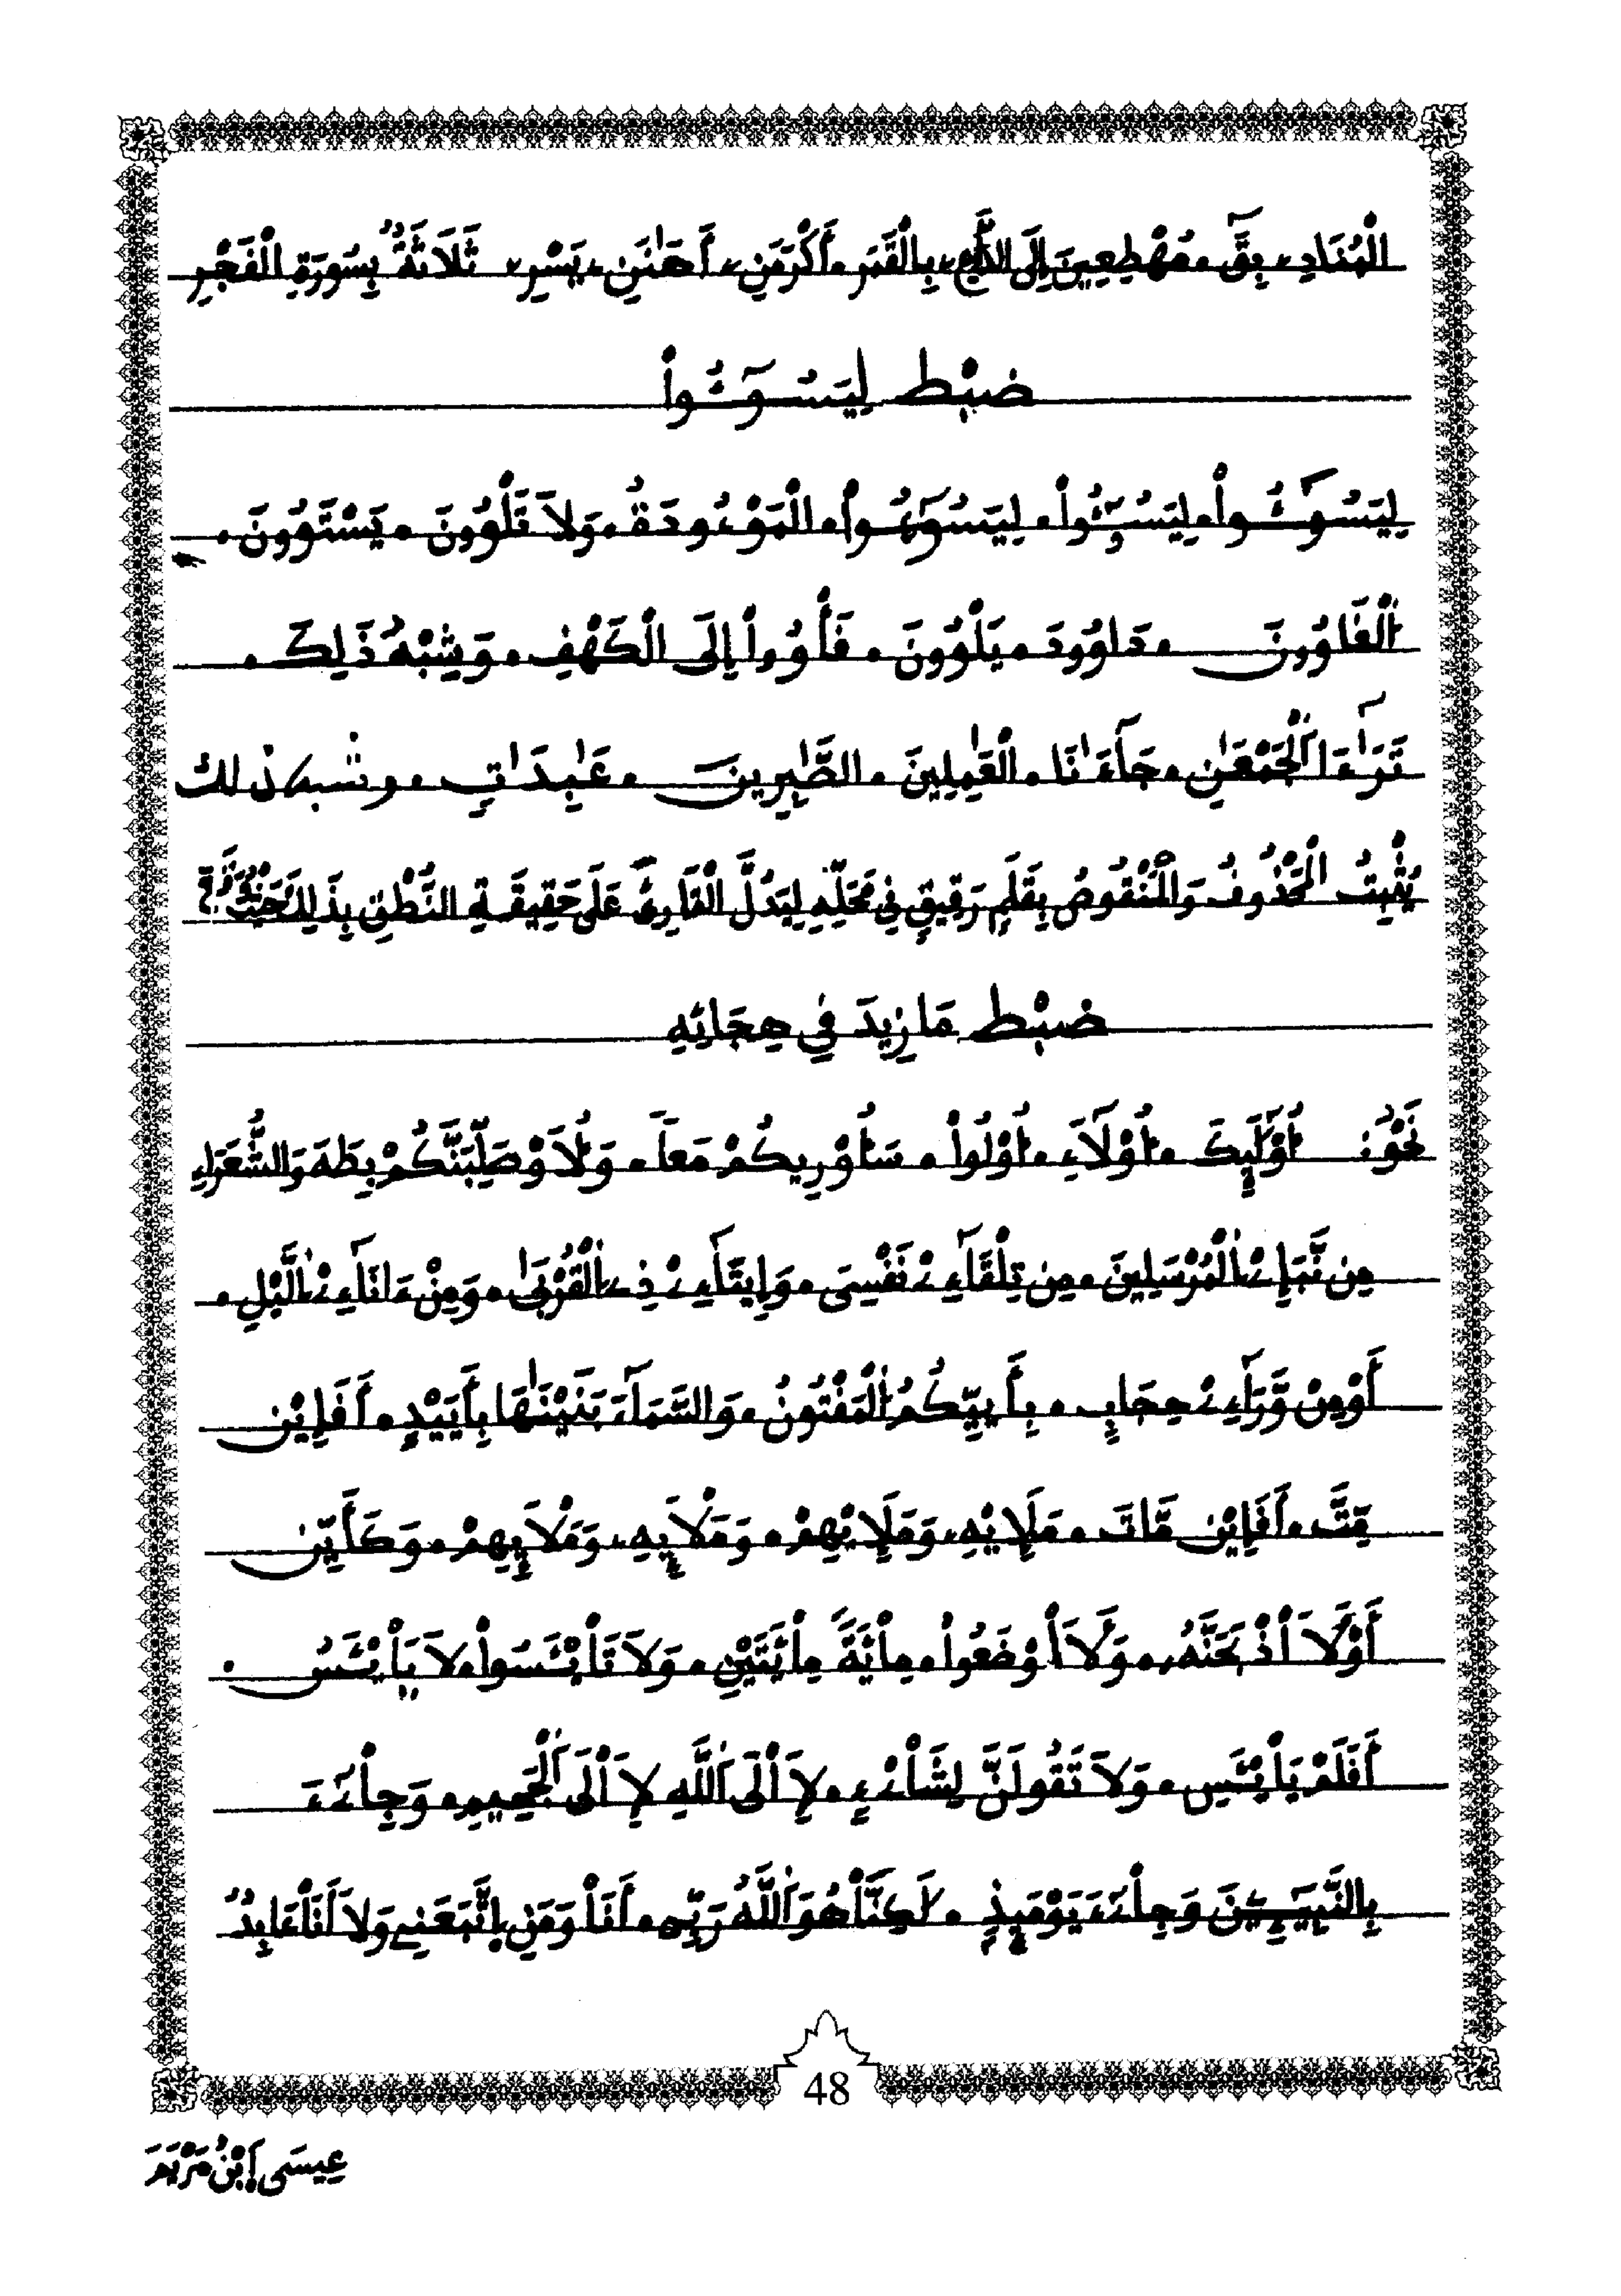 الْمُنَادِۦ بِقَٓ ۰ مُهْطِعِينَ إِلَى الدَّاعِۦ بِالْقَمَر ۰ أَكْرَمَنِۦ أَهَٰنَنِۦ يَسْرِۦ ثَلَاثَةٌ بِسُورَةِ الْفَجْرِ
ضَبْط لِيَسُـࣳـٓـُٔواْ
لِيَسُـࣳـُٔواْ ۰ لِيَسُࣳـُٔواْ ۰ لِيَسُوٓءُواْ ۰ الْمَوْءُودَةُ ۰ وَلَا تَلْوُونَ ۰ يَسْتَوُونَ ۰
اَلْغَاوُونَ ۰ دَاوُودَ ۰ يَلْوُونَ ۰ فَأْوُواْ إِلَى الْكَهْفِ ۰ وَشِبْهُ ذَلِكَ ۰
تَرَٰٓءَا اَلْجَمْعَٰنِ ۰ جَآءَٰنَا ۰ الْعَٰمِلِينَ ۰ الصَّٰبِرِينَ ۰ عَٰبِدَاتٍ ۰ وشبه ذلك
يُثْبِتُ الْمَحْذُوفُ وَالْمَنْقُوصُ بِقَلَمٍ رَقِيقٍ فِي مَحَلِّهِ لِيَدُلَّ الْقَارِئَ عَلَى حَقِيقَةِ النُّطْقِ بِذَلِكَ
ضَبْط مَا زِيدَ فِي هِجَائِهِ
نَحْوُ: أُوْلَٰٓئِكَ ۰ أُوْلَآءِ ۰ أُوْلُواْ ۰ سَأُوْرِيكُمْ مَعاً ۰ وَلَأُوْصَلِّبَنَّكُمْ بِطَهَ وَالشُّعَرَاءِ
مِن نَّبَإِےْ اِلْمُرْسَلِينَ ۰ مِن تِلْقَآءِےْ نَفْسِيَ ۰ وَإِيتَآءِےْ ذِے اِلْقُرْبَىٰ ۰ وَمِنْ ءَانَآءِےْ اِلَّيْلِ ۰
أَوْ مِنْ وَّرَآءِےْ حِجَابٍ ۰ بِأَييِّكُمُ اُلْمَفْتُونُ ۰ وَالسَّمَآءَ بَنَيْنَٰهَا بِأَيَيْدٍ ۰ أَفَإِيْن
مِّتَّ ۰ أَفَإِيْن مَّاتَ ۰ مَلَإِيْهِۦ وَمَلَإِيْهِمْ ۰ وَمَلَإِيْهِۦ وَمَلَإِيْهِمْ ۰ وَكَأَيِّن
أَوْ لَأَاْذْبَحَنَّهُۥ ۰ وَلَأَاْوْضَعُواْ ۰ مِاْئَةً مِاْئَتَيْنِ ۰ وَلَا تَاْيْـَٔسُواْ لَا يَاْيْـَٔسُ ۰
أَفَلَمْ يَاْيْـَٔسِ ۰ وَلَا تَقُولَنَّ لِشَاْےْءٍ ۰ لَإِاْلَى اَللَّهِ لَإِاْلَى اَلْجَحِيمِ ۰ وَجِاْےٓءَ
بِالنَّبِيٓـِٕينَ وَجِاْےٓءَ يَوْمَئِذٍ ۰ لَكِنَّاْ هُوَ اَللَّهُ رَبِّے ۰ أَنَاْ وَمَنِ اِتَّبَعَنِے وَلَا أَنَاْ عَابِدٌ
48
عِيسَى اَبْنُ مَرْيَمَ